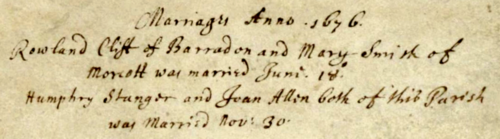 Marriages Anno . 1676.
Rowland Clift of Barradon and Mary Smith of
Morcott was married Juni. 18.
Humphry Stanger and Joan Allen both of this Parish
was Married Nov: 30.